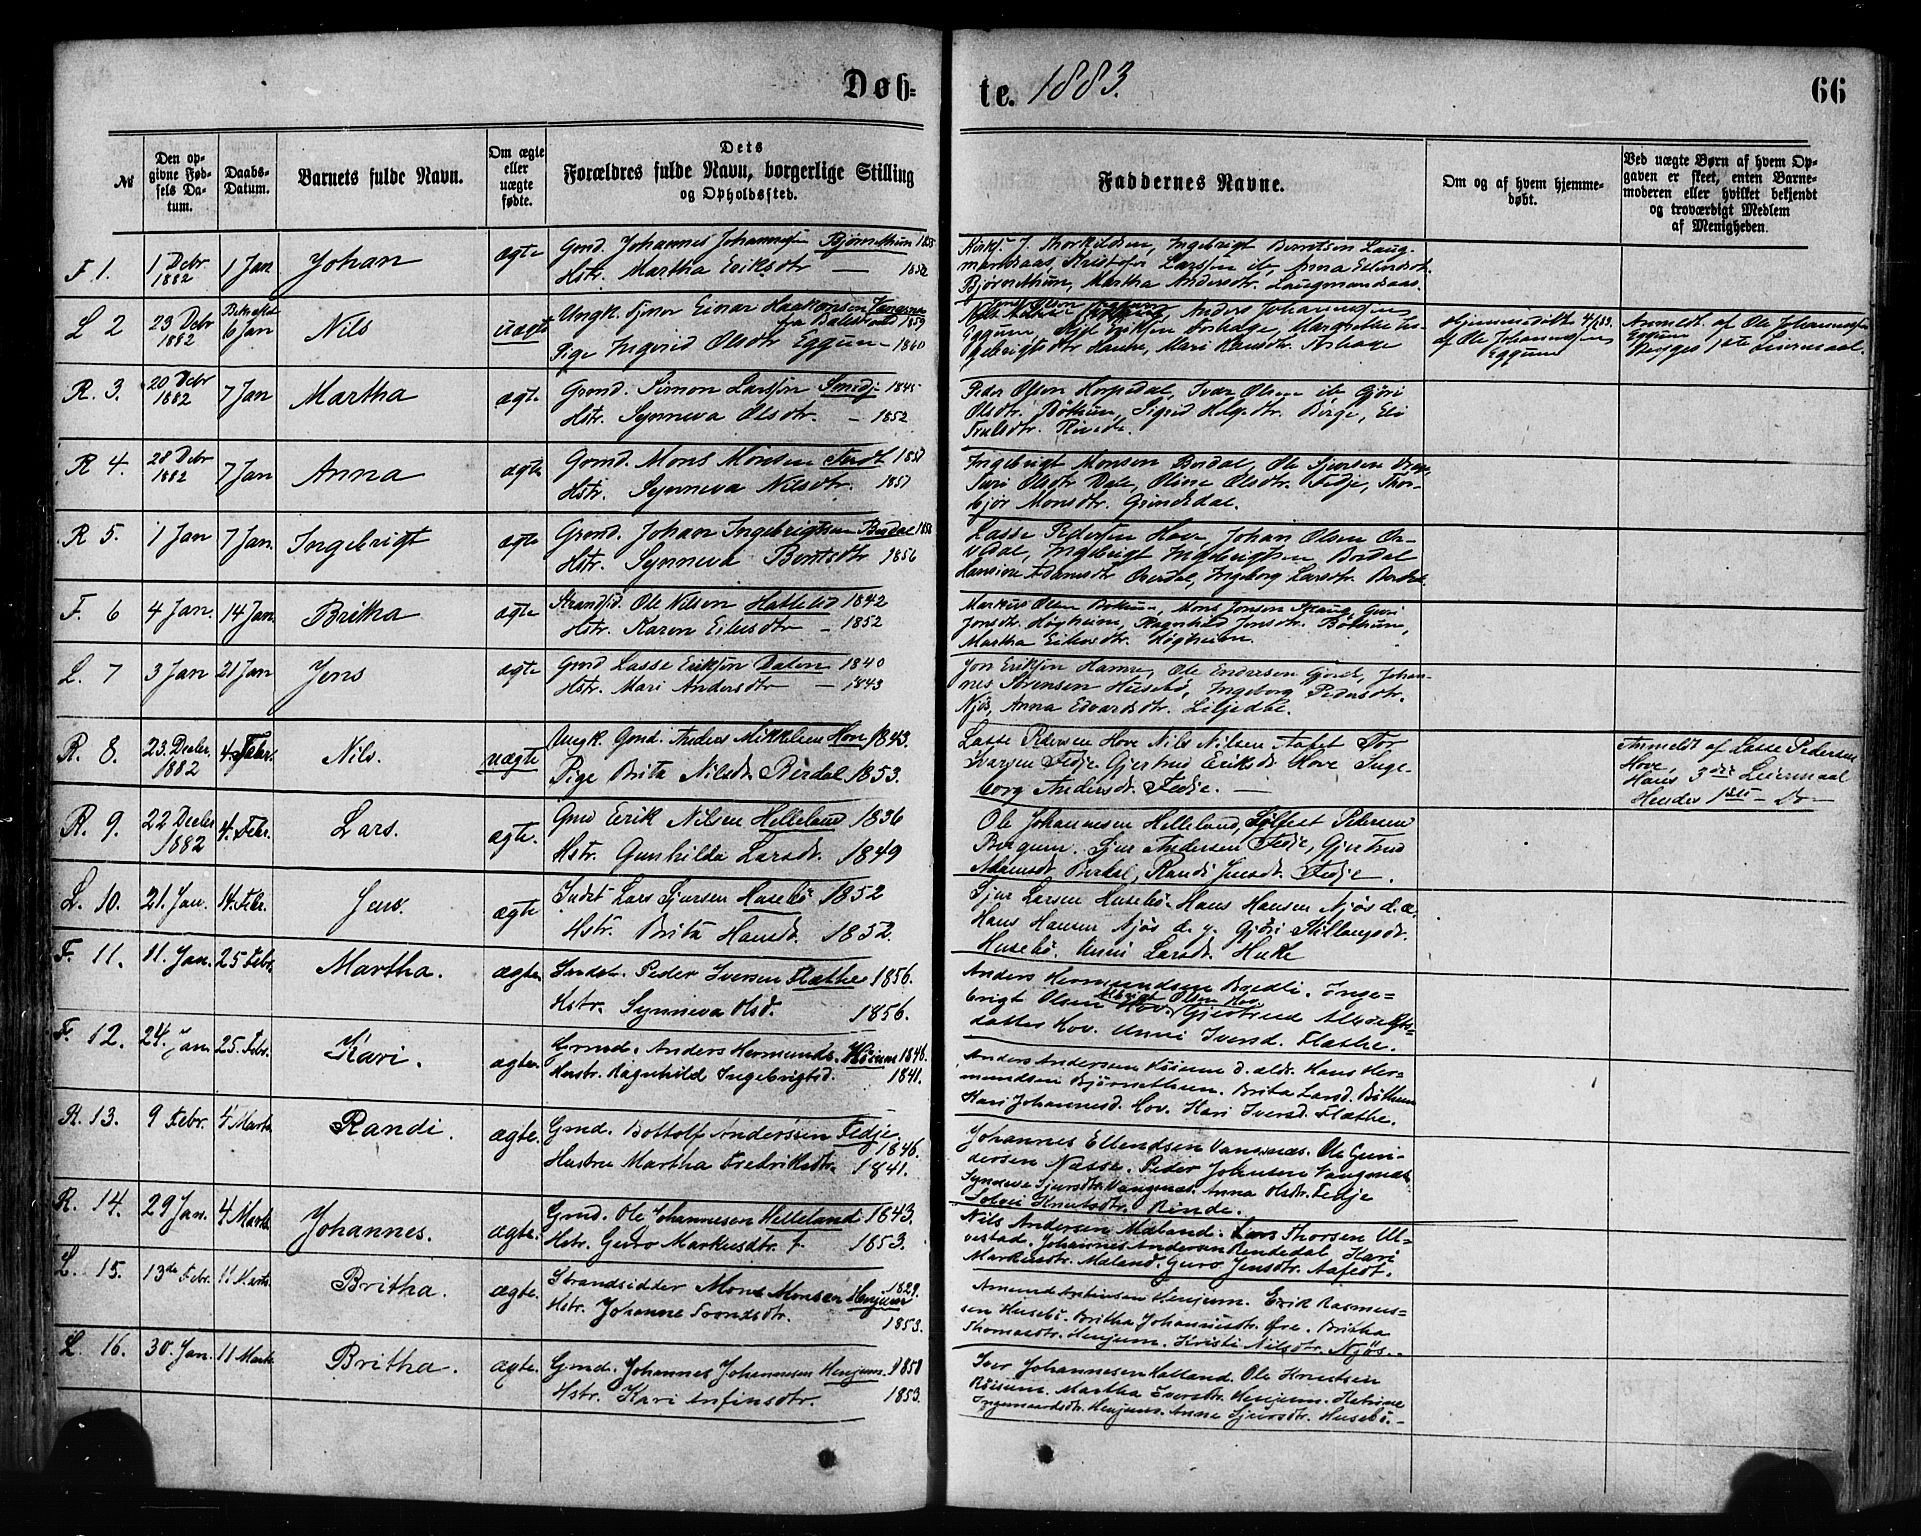 Døb-
te. 1883.
66
№
Den op-
givne Fød-
sels Da-
tum.
Daabs-
Datum.
Barnets fulde Navn.
Om ægte
eller
uægte
fødte.
Dets
Forældres fulde Navn, borgerlige Stilling
og Opholdssted.
Faddernes Navne.
Om og af hvem hjemme-
døbt.
Ved uægte Børn af hvem Op-
gaven er skeet, enten Barne-
moderen eller hvilket bekjendt
og troværdigt Medlem
af Menigheden.
F 1.
1 Debr
1882
1 Jan
Johan
ægte
Gmd. Johannes Johannesen Bjørnethun
Hstr. Martha Eriksdtr — 1852
Kirks. J. Thorkildsen, Ingebrigt Berntsen Laug-
mandsaas Kristofer Larssen ib, Anna
Bjørnethun, Martha Andersdtr. Laugmandsaas
L 2
23 Debr
1882
6 Jan
Nils
uægte
Ungk. Einar Haakonsen Vangsnes
fra Balestrand 1859
Pige Ingerid Olsdtr Eggum 1860
Anders Johannessen
Eggum
Hjemmedøbt 4/1 83.
af Ole Johannessen
Eggum
Anmeldt af Ole Johannessen
Eggum
Begges 1ste Leiermaal.
R. 3.
20 Debr
1882
7 Jan
Martha
ægte
Gmd. Simon Larssen 1845
Hstr. Synneva Olsdtr. — 1852
Peder Olsen Hopedal, Ivar Olsen ib Gjøri
Olsdtr. Bøthun, Sigrid Berge, Eli
R 4.
28 Debr
1882
7 Jan
Anna
ægte
Gmd. Mons Monsen
Hstr. Synneva Nilsdtr. 1857
Ingebrigt Monsen Berdal, Ole Sjursen
Olsdtr Dale, Oline Olsdtr. Fedje, Thor-
bjør Monsdtr. Grindsdal.
R 5.
1 Jan
7 Jan.
Ingebrigt
ægte
Gmd. Johan Ingebrigtsen Berdal
Hstr. Synneva Berntsdtr 1856
Lasse Pedersen Hove, Johan Olsen Ov-
Ingebrigt Ingebrigtsen Berdal
Ingeborg Larsdtr. Berdal.
F. 6
4 Jan.
14 Jan.
Britha
ægte
Strandsid. Ole Nilsen 1842
Hstr. Karen Eilersdtr — 1852
Markus Olsen Bøthun, Mons Jonsen
Jonsdtr. Høghum, Ragnhild Jonsdtr. Bøthun,
Martha Eilersdtr. Høgheim.
L. 7
3 Jan
21 Jan
Jens
ægte
Gmd Lasse Eriksen Dalen 1840
Hstr. Mari Andersdtr — 1843
Jon Eriksen Hamre, Ole Endresen Gjerde, Johan-
nes Sørensen Husebø, Ingeborg Pedersdtr.
Njøs, Anna Edvardsdtr. Liljedal.
R. 8.
23. Decbr.
1882
4. Febr.
Nils.
uægte
Ungk. Gmd. Anders Mikkelsen Hove 1843.
Pige Brita Nilsdr. Berdal 1853.
Lasse Pedersen Hove Nils Nilsen Aafet Tor
Ivarsen Fedje Gjertrud Eriksdr. Hove Inge-
borg Andersdr. Fedje. —
Anmeldt af Lasse Pedersen
Hove,
Hans 3die Leiermaal
Hendes 1ste — Do —
R. 9.
22 Decbr
1882
4. Febr.
Lars.
ægte.
Gmd Erik Nilsen Helleland 1836
Hstr. Gunhilda Larsdr. 1849
Ole Johannesen Helleland, Pedersen
Bergum. Sjur Andersen Fedje, Gjertrud
Adamsdr Berdal, Randi Jensdr. Fedje.
L. 10.
21. Jan.
14. Febr.
Jens.
ægte
Indst Lars Sjursen Husebø 1852
Hstr. Brita Hansdr. 1852.
Sjur Larsen Husebø. Hans Hansen Njøs d. æ.
Hans Hansen Njøs d. y. Gjøri
Husebø. Unni Larsdr. Hukle
F. 11.
11. Jan.
25 Febr.
Martha.
ægte.
Indstr. Peder Iversen Flæthe 1856.
Hstr. Synneva Olsd. 1856.
Anders Hermundsen Bredli. Inge-
brigt Olsen Hov. Gjertrud
datter Hov. Unni Iversd. Flæthe.
F. 12.
24. Jan
25. Febr.
Kari.
ægte.
Grmd. Anders Hermunds. 1846.
Hustr. Ragnhild Ingebrigtsd. 1841.
Anders Andersen d. ældr. Hans Her-
mundsen Bjørnethun. Brita Larsd. Bøthun
Kari Johannesd. Hov. Kari Iversd. Flæthe.
R. 13.
9 Febr.
4 Marts
Randi.
ægte.
Gmd. Bottolf Anderssen Fedje
1846.
Hustru Martha Fredriksdtr. 1841.
Johannes Ellendsen Vangsnæs. Ole Gun-
dersen Nasse. Peder Johnsen Vangsnæs
Synneve Sjursdtr. Vangsnæs. Anna Olsdtr. Fedje
Knutsdtr. Rinde.
R. 14.
29 Jan.
4 Marts
Johannes.
ægte.
Gmd. Ole Johannesen Helleland 1843.
Hstr. Guro Markusdtr. 1853.
Nils Andersen Mæland. Lars Thorsen Ul-
vestad. Johannes Andersen Rendedal Kari
Markusdtr. Mæland. Guro Jensdtr. Aafedt.
L. 15.
13de Febr.
11 Marts
Britha.
ægte.
Strandsidder Mons Monsen Henjum 1829.
Hstr. Johanne 1853.
Amund Henjum. Erik Rasmus-
sen Husebø. Britha Johannesdtr. Øre. Britha
Thomasdtr. Henjum. Kristi Nilsdtr. Njøs.
L 16.
30. Jan.
11 Marts
Britha.
ægte.
Gmd. Johannes Johannesen Henjum.
Hstr. Kari Anfinsdtr. 1853.
Iver Johannesen Ole Knutsen
Martha Iversdtr. Henjum. Katrine
Henjum. Anne Sjursdtr. Husebø.